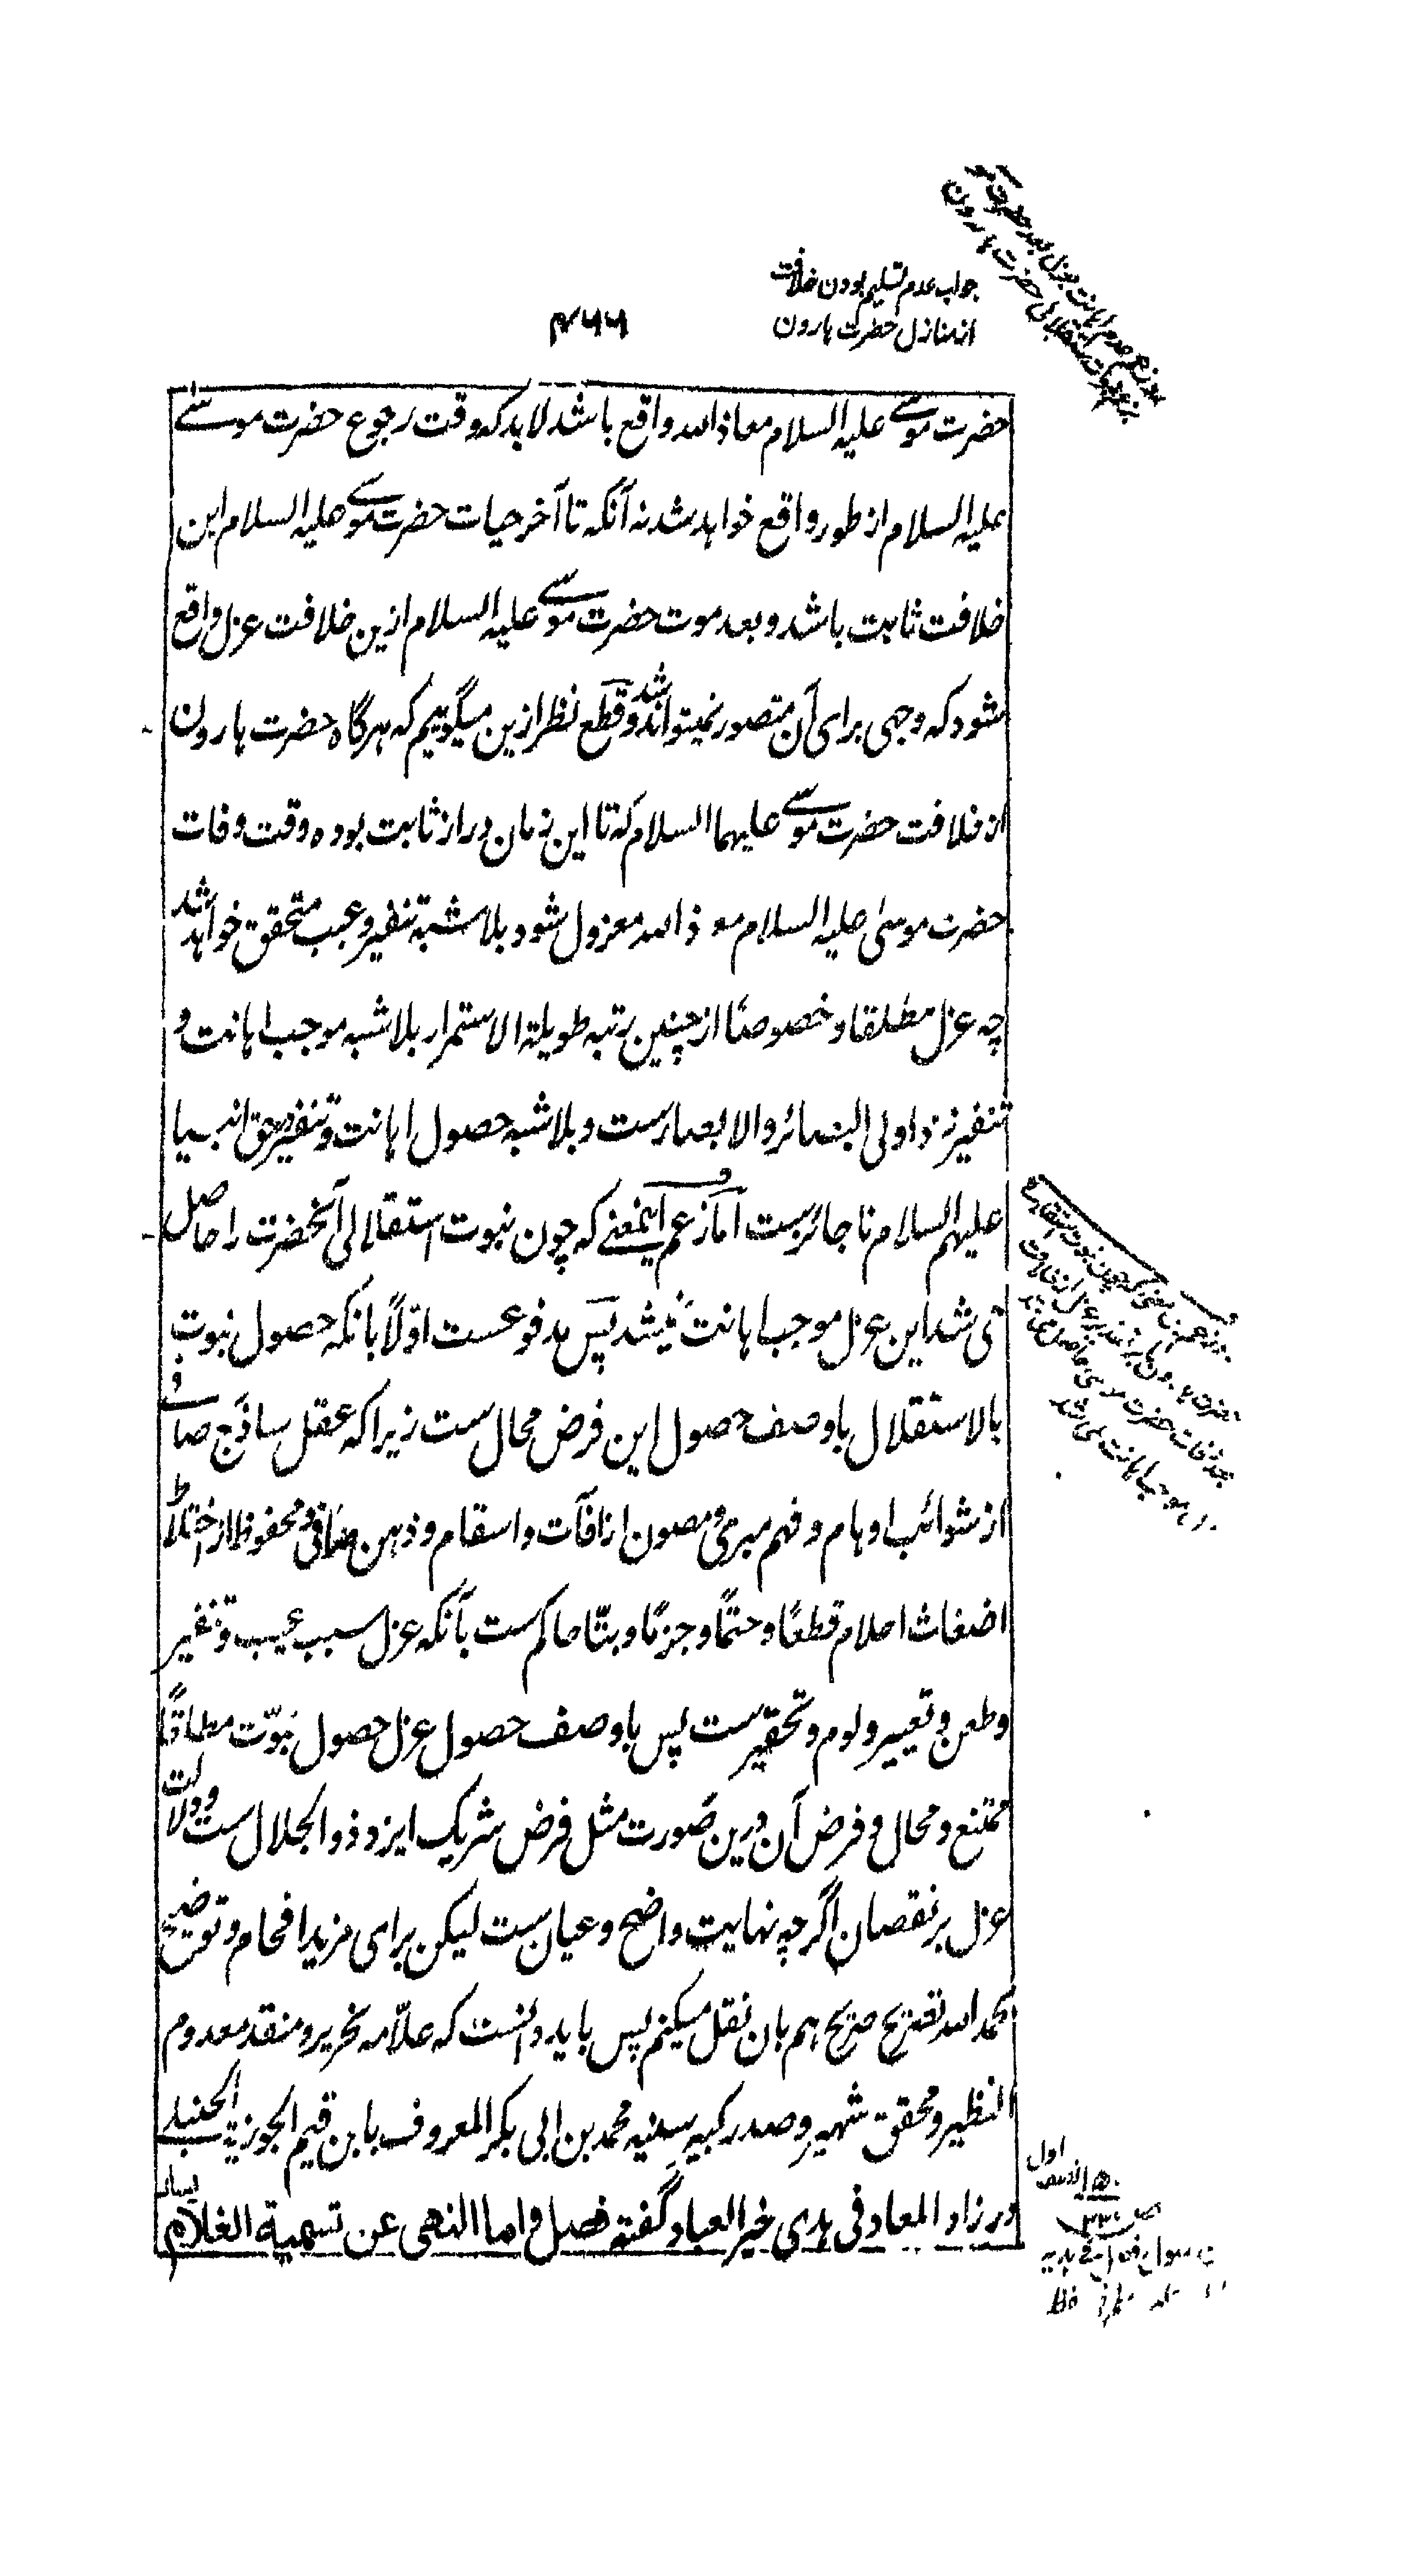 جواب عدم تسلیم بودن خلافت
از منازل حضرت هارون
۴۶۶
حضرت موسے علیه السلام معاذ الله واقع باشد لابد که وقت رجوع حضرت موسے
علیه السلام از طور واقع خواهد شد نه آنکه تا آخر حیات حضرت موسے علیه السلام این
خلافت ثابت باشد و بعد موت حضرت موسے علیه السلام ازین خلافت عزل واقع
شود که وجهی برای آن متصور نمیتواند شد و قطع نظر ازین میگوییم که هرگاه حضرت هارون
از خلافت حضرت موسے علیهما السلام که تا این زمان دراز ثابت بوده وقت وفات
حضرت موسیٰ علیه السلام معاذ الله معزول شود بلا شبهة تنفیر و عیب متحقق خواهد شد
چه عزل مطلقا و خصوصًا از چنین رتبه طویلة الاستمرار بلا شبه موجب اهانت و
تنفیر نزد اولی البصائر و الابصارست و بلا شبه حصول اهانت و تنفیر بحق انبیا
علیهم السلام نا جائزست اما زعم اینمعنے که چون نبوت استقلالی آنحضرت را حاصل
می شد این عزل موجب اهانت نمیشد پس مدفوعست اوّلاً بانکه حصول نبوت
بالاستقلال با وصف حصول این فرض محال ست زیرا که عقل ساذج صافے
از شوائب اوهام و فهم مبری و مصون از آفات و اسقام و ذهن صافی و محفوظ از اختلاط
اضغاث احلام قطعًا و حتمًا و جزمًا و بتّا حاکم ست بآنکه عزل سبب عیب و تنفیر
و طعن و تعییر و لوم و تحقیرست پس با وصف حصول عزل حصول نبوّت مطلقًا
ممتنع و محال و فرض آن درین صورت مثل فرض شریک ایزد ذو الجلال ست و دلالت
عزل بر نقصان اگرچه نهایت واضح و عیان ست لیکن برای مزید افحام و توضیح
بحمد الله تصریح صریح هم بان نقل میکنم پس باید دانست که علّامه نحریر و منقد معدوم
النظیر و محقق شهیر و صدر کبیر سنیه محمد بن ابی بکر المعروف بابن قیم الجوزیة الحنبلے
در زاد المعاد فی هدی خیر العباد گفته فصل و اما النهی عن تسمیة الغلام بیسار